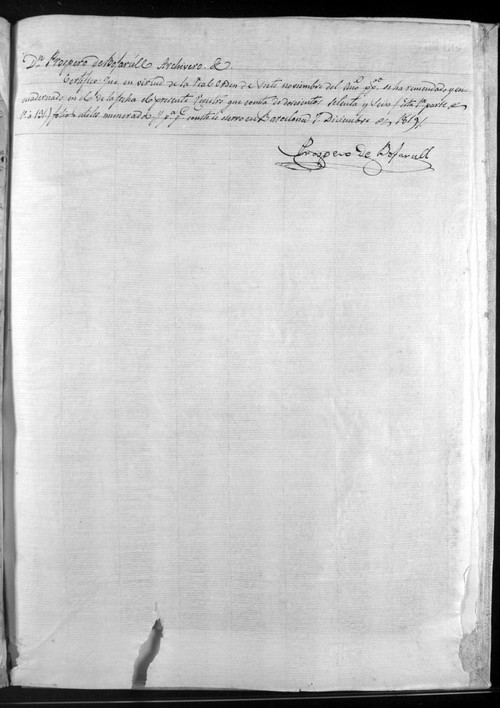 Dn. Prospero de Bofarull Archivero &
Certifico: que en virtud de la Real Orden de Siete noviembre del Año pp.o se ha remendado y en-
cuadernado en el de la fecha el presente Registro que consta de doscientos setenta y seis (Esta 1a. parte de
1 á 131) folios utiles numerados, y pa. qe. conste lo cierro en Barcelona 7 Diciembre de 1819.
Prospero de Bofarull